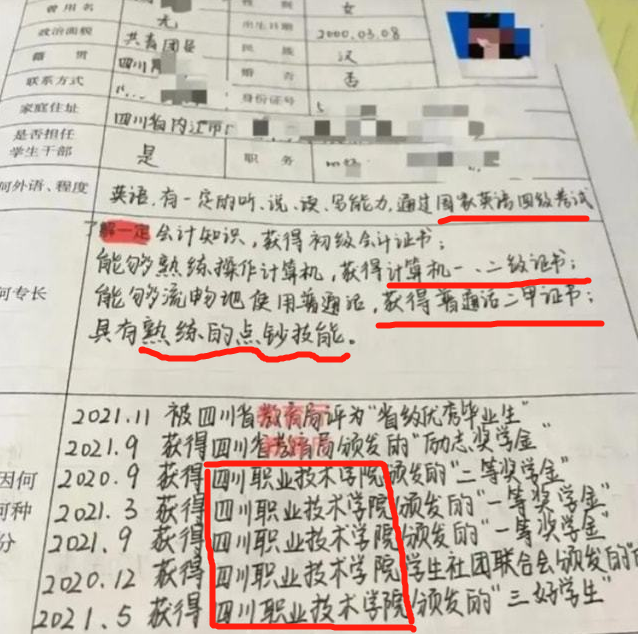 曾用名 无 性别 女
政治面貌 共青团员 出生日期 2000.03.08
籍贯 四川 民族 汉
联系方式 婚否 否
家庭住址 身份证号
四川省内江市
是否担任学生干部 是 职务
何外语、程度 英语,有一定的听、说、读、写能力,通过国家英语四级考试
了解一定会计知识,获得初级会计证书;
能够熟练操作计算机,获得计算机一、二级证书;
何专长 能够流畅地使用普通话,获得普通话二甲证书;
具有熟练的点钞技能。
2021.11 被四川省教育局评为“省级优秀毕业生”
2021.9 获得四川省教育局颁发的“励志奖学金”
因何 2020.9 获得四川职业技术学院颁发的“二等奖学金”
何种 2021.3 获得四川职业技术学院颁发的“一等奖学金”
分 2021.9 获得四川职业技术学院颁发的“一等奖学金”
2020.12 获得四川职业技术学院学生社团联合会颁发的“
2021.5 获得四川职业技术学院颁发的“三好学生”